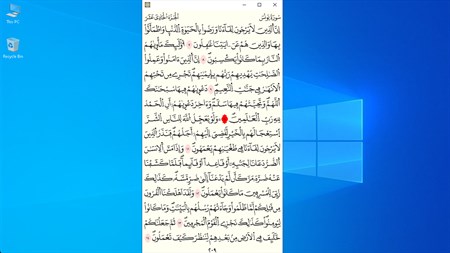 This PC
Recycle Bin
سورة يونس الجزء الحادي عشر
إِنَّ الَّذِينَ لَا يَرْجُونَ لِقَاءَنَا وَرَضُوا بِالْحَيَوٰةِ الدُّنْيَا وَاطْمَأَنُّوا
بِهَا وَالَّذِينَ هُمْ عَنْ ءَايَٰتِنَا غَٰفِلُونَ ۝ أُولَٰئِكَ مَأْوَىٰهُمُ
النَّارُ بِمَا كَانُوا يَكْسِبُونَ ۝ إِنَّ الَّذِينَ ءَامَنُوا وَعَمِلُوا
الصَّٰلِحَٰتِ يَهْدِيهِمْ رَبُّهُمْ بِإِيمَٰنِهِمْ تَجْرِي مِنْ تَحْتِهِمُ
الْأَنْهَٰرُ فِي جَنَّٰتِ النَّعِيمِ ۝ دَعْوَىٰهُمْ فِيهَا سُبْحَٰنَكَ
اللَّهُمَّ وَتَحِيَّتُهُمْ فِيهَا سَلَٰمٌ وَءَاخِرُ دَعْوَىٰهُمْ أَنِ الْحَمْدُ
لِلَّهِ رَبِّ الْعَٰلَمِينَ ۝ وَلَوْ يُعَجِّلُ اللَّهُ لِلنَّاسِ الشَّرَّ
اسْتِعْجَالَهُمْ بِالْخَيْرِ لَقُضِيَ إِلَيْهِمْ أَجَلُهُمْ فَنَذَرُ الَّذِينَ
لَا يَرْجُونَ لِقَاءَنَا فِي طُغْيَٰنِهِمْ يَعْمَهُونَ ۝ وَإِذَا مَسَّ الْإِنْسَٰنَ
الضُّرُّ دَعَانَا لِجَنْبِهِ أَوْ قَاعِدًا أَوْ قَائِمًا فَلَمَّا كَشَفْنَا
عَنْهُ ضُرَّهُ مَرَّ كَأَنْ لَمْ يَدْعُنَا إِلَىٰ ضُرٍّ مَسَّهُ كَذَٰلِكَ
زُيِّنَ لِلْمُسْرِفِينَ مَا كَانُوا يَعْمَلُونَ ۝ وَلَقَدْ أَهْلَكْنَا الْقُرُونَ
مِنْ قَبْلِكُمْ لَمَّا ظَلَمُوا وَجَاءَتْهُمْ رُسُلُهُمْ بِالْبَيِّنَٰتِ وَمَا كَانُوا
لِيُؤْمِنُوا كَذَٰلِكَ نَجْزِي الْقَوْمَ الْمُجْرِمِينَ ۝ ثُمَّ جَعَلْنَٰكُمْ
خَلَٰئِفَ فِي الْأَرْضِ مِنْ بَعْدِهِمْ لِنَنْظُرَ كَيْفَ تَعْمَلُونَ ۝
٢٠٩